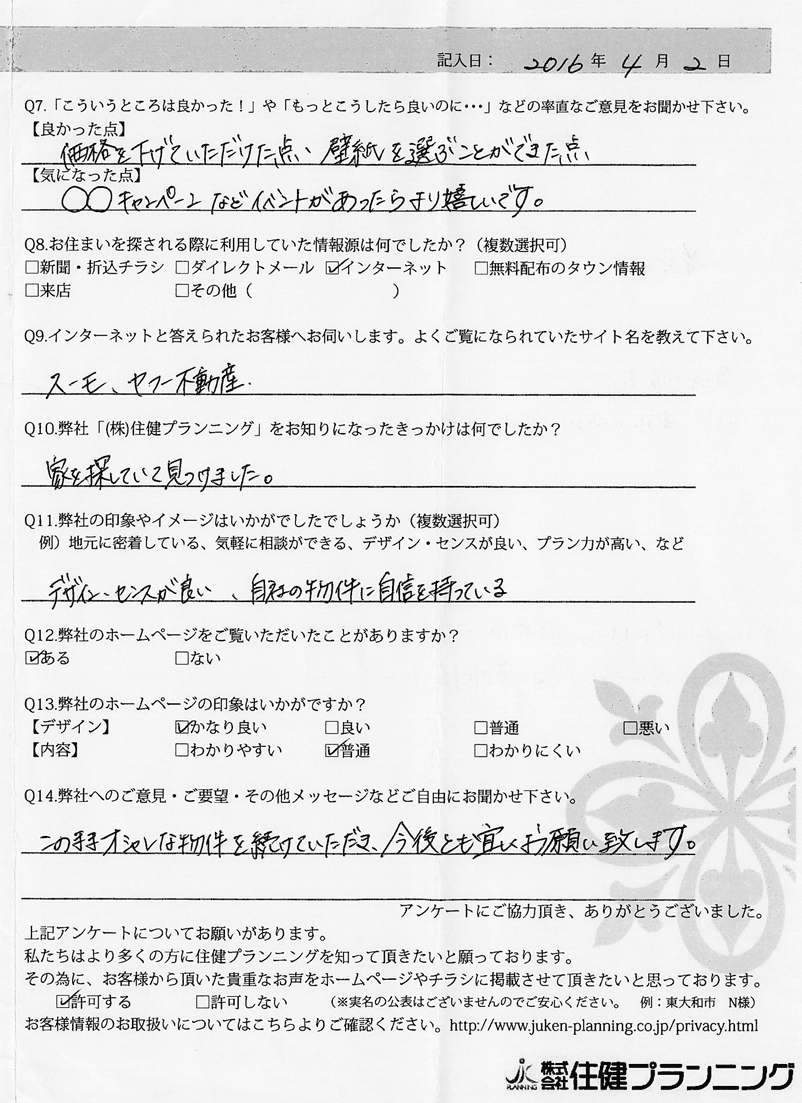 記入日： 2016 年 4 月 2 日
Q7.「こういうところは良かった！」や「もっとこうしたら良いのに・・・」などの率直なご意見をお聞かせ下さい。
【良かった点】
価格を下げていただけた点、壁紙を選ぶことができた点、
【気になった点】
○○キャンペーンなどイベントがあったらより嬉しいです。
Q8.お住まいを探される際に利用していた情報源は何でしたか？（複数選択可）
□新聞・折込チラシ □ダイレクトメール ☑インターネット □無料配布のタウン情報
□来店 □その他（ ）
Q9.インターネットと答えられたお客様へお伺いします。よくご覧になられていたサイト名を教えて下さい。
スーモ、ヤフー不動産.
Q10.弊社「(株)住健プランニング」をお知りになったきっかけは何でしたか？
家を探していて見つけました。
Q11.弊社の印象やイメージはいかがでしたでしょうか（複数選択可）
例）地元に密着している、気軽に相談ができる、デザイン・センスが良い、プラン力が高い、など
デザイン、センスが良い、自社の物件に自信を持っている
Q12.弊社のホームページをご覧いただいたことがありますか？
☑ある □ない
Q13.弊社のホームページの印象はいかがですか？
【デザイン】 ☑かなり良い □良い □普通 □悪い
【内容】 □わかりやすい ☑普通 □わかりにくい
Q14.弊社へのご意見・ご要望・その他メッセージなどご自由にお聞かせ下さい。
このままオシャレな物件を続けていただき、今後とも宜しくお願い致します。
アンケートにご協力頂き、ありがとうございました。
上記アンケートについてお願いがあります。
私たちはより多くの方に住健プランニングを知って頂きたいと願っております。
その為に、お客様から頂いた貴重なお声をホームページやチラシに掲載させて頂きたいと思っております。
☑許可する □許可しない （※実名の公表はございませんのでご安心ください。 例：東大和市 N様）
お客様情報のお取扱いについてはこちらよりご確認ください。http://www.juken-planning.co.jp/privacy.html
JK PLANNING 株式会社住健プランニング